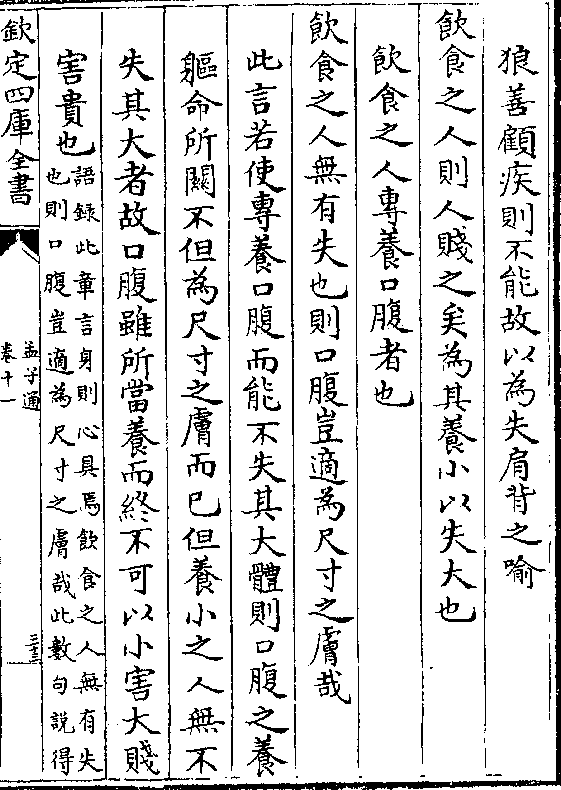 狼善顧疾則不能故以為失肩背之喻
飲食之人則人賤之矣為其養小以失大也
飲食之人專養口腹者也
飲食之人無有失也則口腹豈適為尺寸之膚哉
此言若使專養口腹而能不失其大體則口腹之養
軀命所關不但為尺寸之膚而已但養小之人無不
失其大者故口腹雖所當養而終不可以小害大賤
害貴也
語錄此章言身則心具焉飲食之人無有失
也則口腹豈適為尺寸之膚哉此數句說得
欽定四庫全書
孟子通
卷十一
三十三